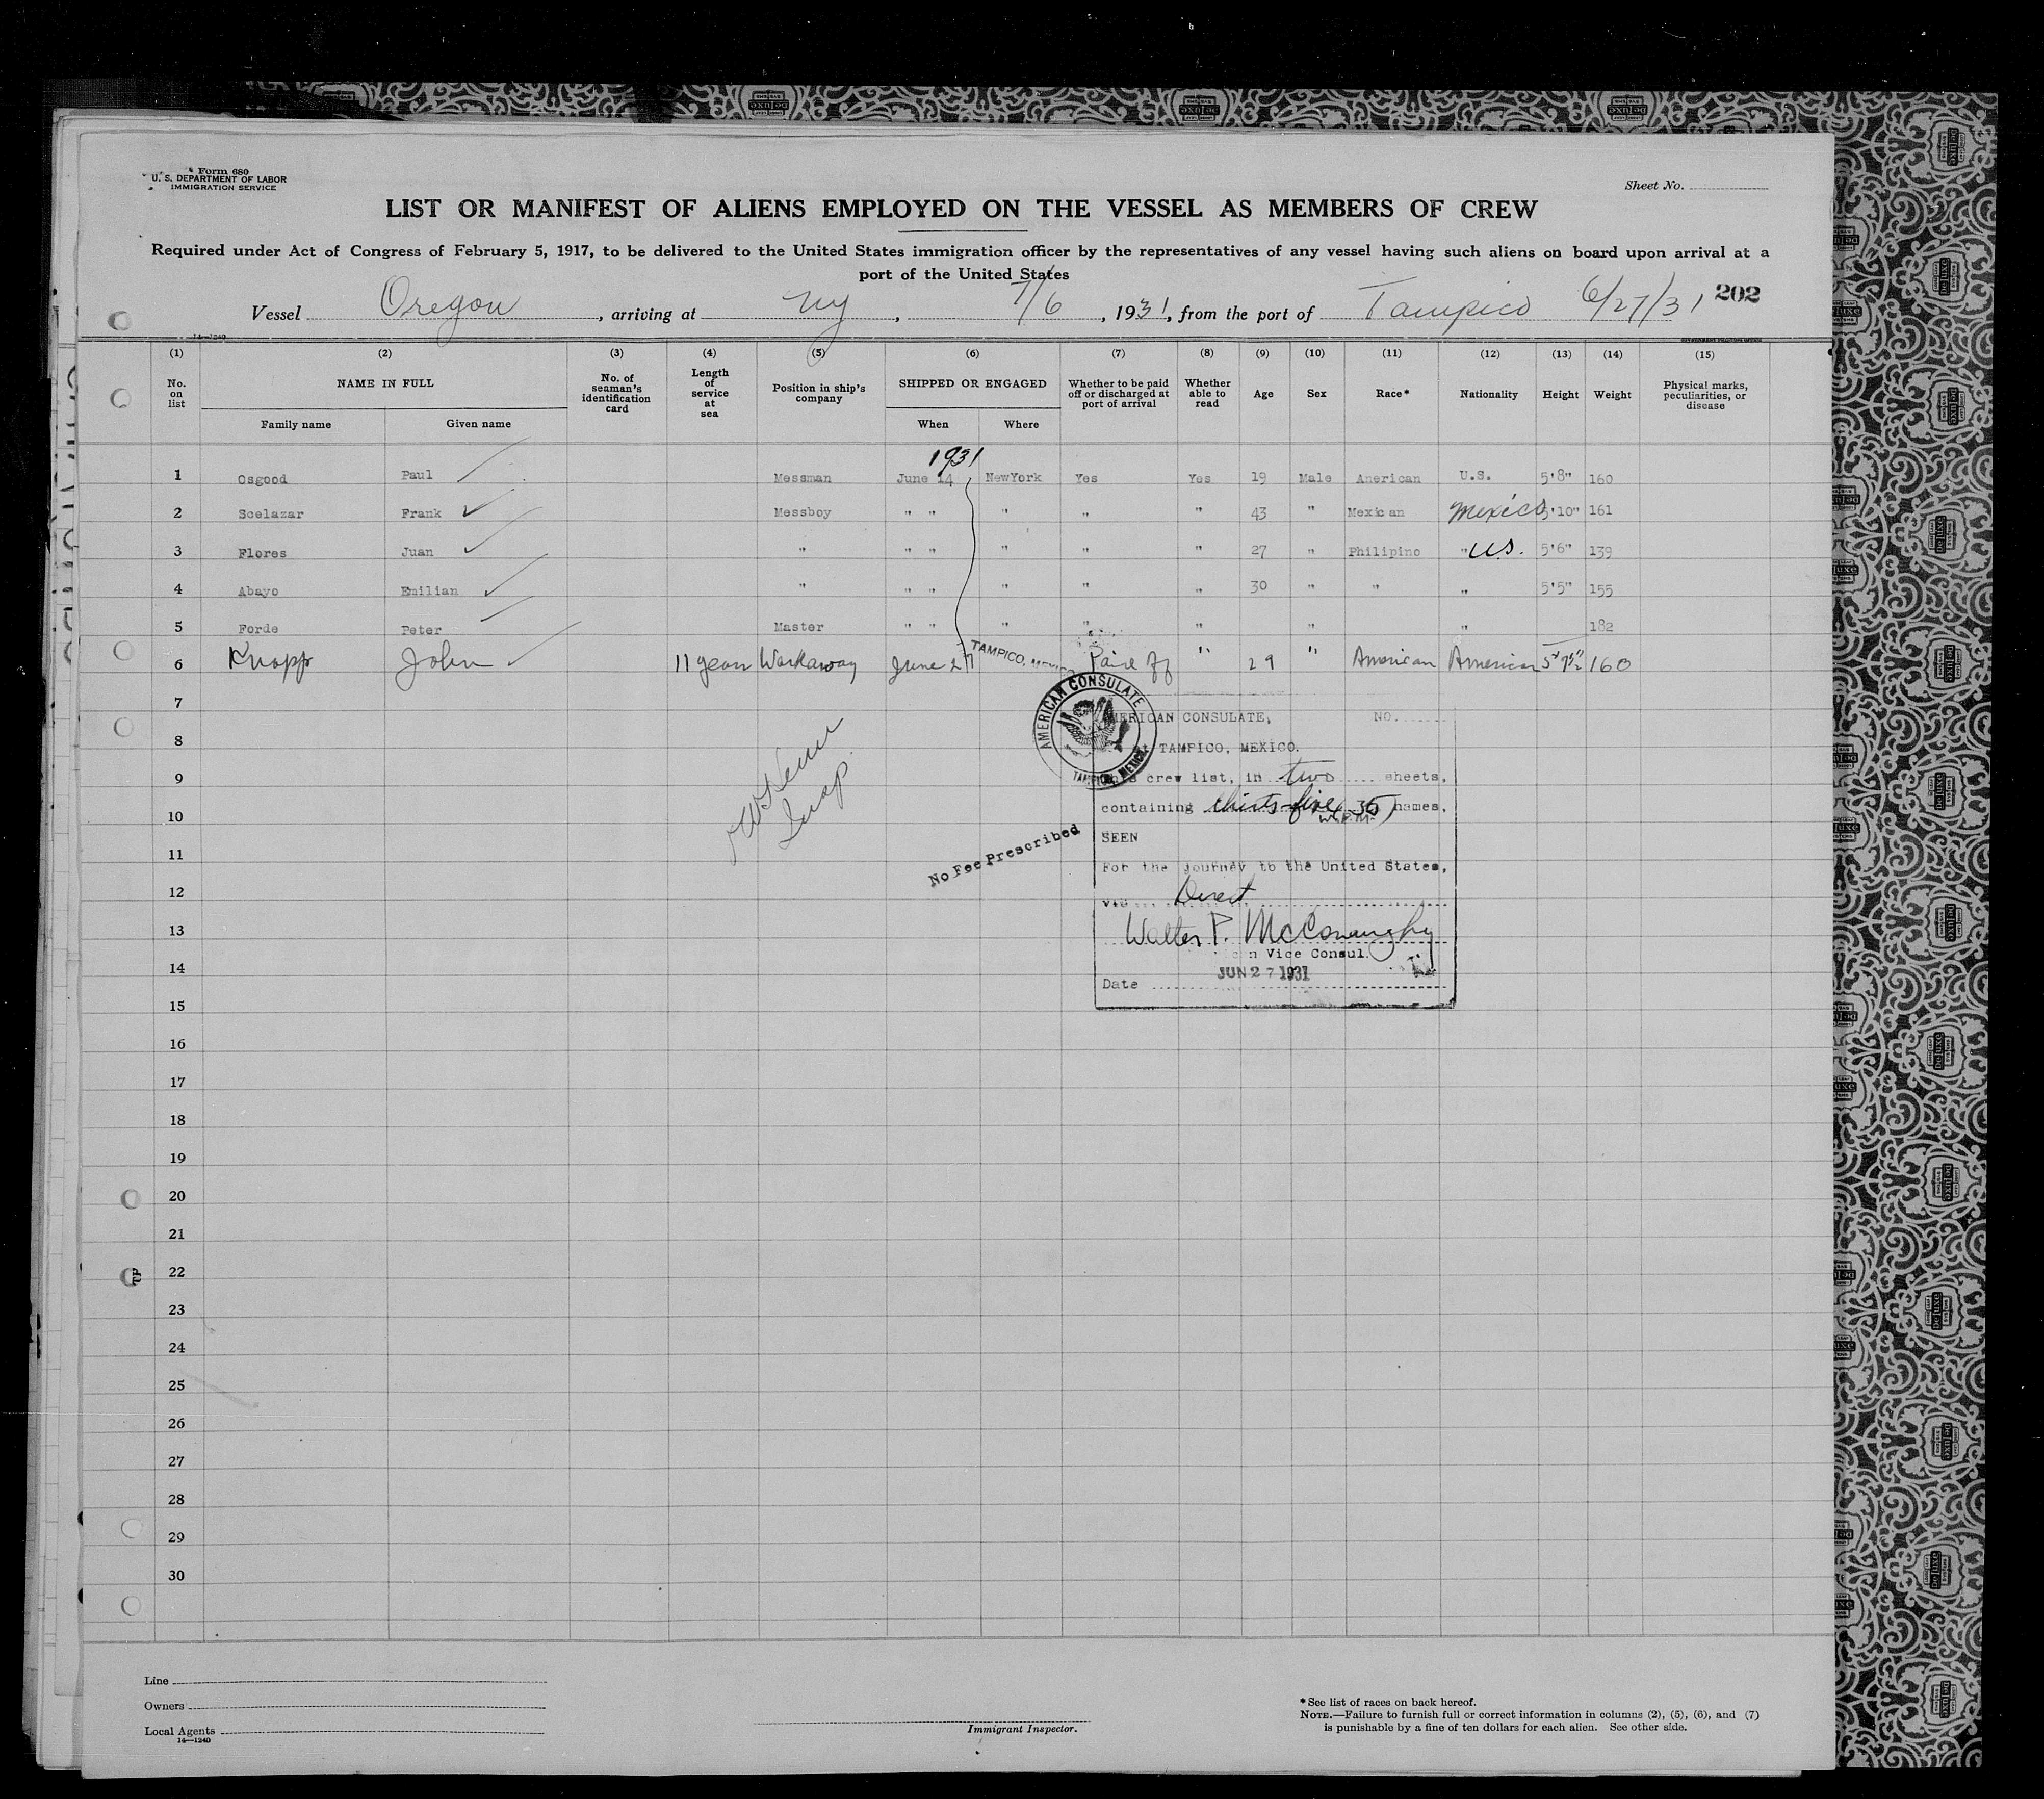 Form 680
U. S. DEPARTMENT OF LABOR
IMMIGRATION SERVICE
Sheet No.
LIST OR MANIFEST OF ALIENS EMPLOYED ON THE VESSEL AS MEMBERS OF CREW
Required under Act of Congress of February 5, 1917, to be delivered to the United States immigration officer by the representatives of any vessel having such aliens on board upon arrival at a
port of the United States
Vessel Oregon, arriving at Ny, 7/6, 1931, from the port of Tampico 6/27/31 202
14—1240
(1) (2) (3) (4) (5) (6) (7) (8) (9) (10) (11) (12) (13) (14) (15)
No. on list NAME IN FULL No. of seaman's identification card Length of service at sea Position in ship's company SHIPPED OR ENGAGED Whether to be paid off or discharged at port of arrival Whether able to read Age Sex Race* Nationality Height Weight Physical marks, peculiarities, or disease
Family name Given name When Where
1931
1 Osgood Paul Messman June 14 NewYork Yes Yes 19 Male American U.S. 5'8" 160
2 Scelazar Frank Messboy " " " " " 43 " Mexican Mexico 5'10" 161
3 Flores Juan " " " " " " 27 " Philipino " U.S. 5'6" 139
4 Abayo Emilian " " " " " " 30 " " " 5'5" 155
5 Forde Peter Master " " " " " " " 182
6 Knapp John 11 years Workaway June 27 TAMPICO, MEXICO Paid off " 29 " American American 5'7½" 160
7
8
9
10
11
12
13
14
15
16
17
18
19
20
21
22
23
24
25
26
27
28
29
30
AMERICAN CONSULATE
TAMPICO, MEXICO
AMERICAN CONSULATE, NO.
TAMPICO, MEXICO.
crew list, in two sheets,
containing thirty-five (35) names.
SEEN
For the journey to the United States,
via Direct
Walter P. McConaughy
Vice Consul.
JUN 27 1931
Date
No Fee Prescribed
Insp
Line
Owners
Local Agents
14—1240
Immigrant Inspector.
*See list of races on back hereof.
NOTE.—Failure to furnish full or correct information in columns (2), (5), (6), and (7)
is punishable by a fine of ten dollars for each alien. See other side.